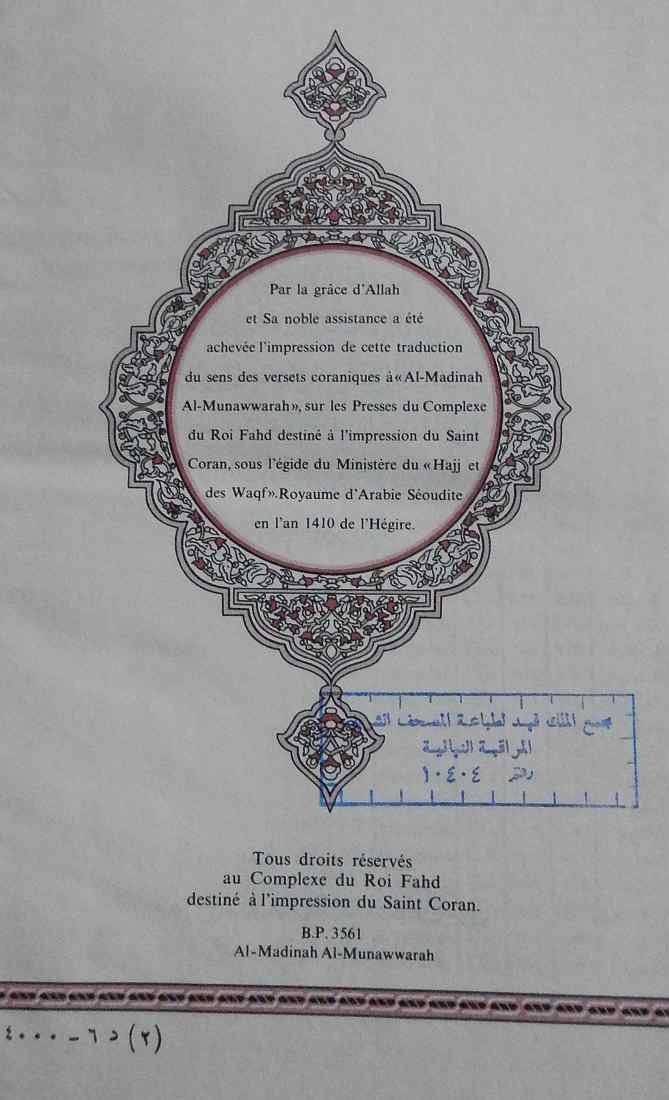 Par la grâce d'Allah
et Sa noble assistance a été
achevée l'impression de cette traduction
du sens des versets coraniques à «Al-Madinah
Al-Munawwarah», sur les Presses du Complexe
du Roi Fahd destiné à l'impression du Saint
Coran, sous l'égide du Ministère du «Hajj et
des Waqf». Royaume d'Arabie Séoudite
en l'an 1410 de l'Hégire.
مجمع الملك فهد لطباعة المصحف
المراقبة النهائية
رقم ١٠٤٠٤
Tous droits réservés
au Complexe du Roi Fahd
destiné à l'impression du Saint Coran.
B.P. 3561
Al-Madinah Al-Munawwarah
(٢) د ٦ - ٤٠٠٠